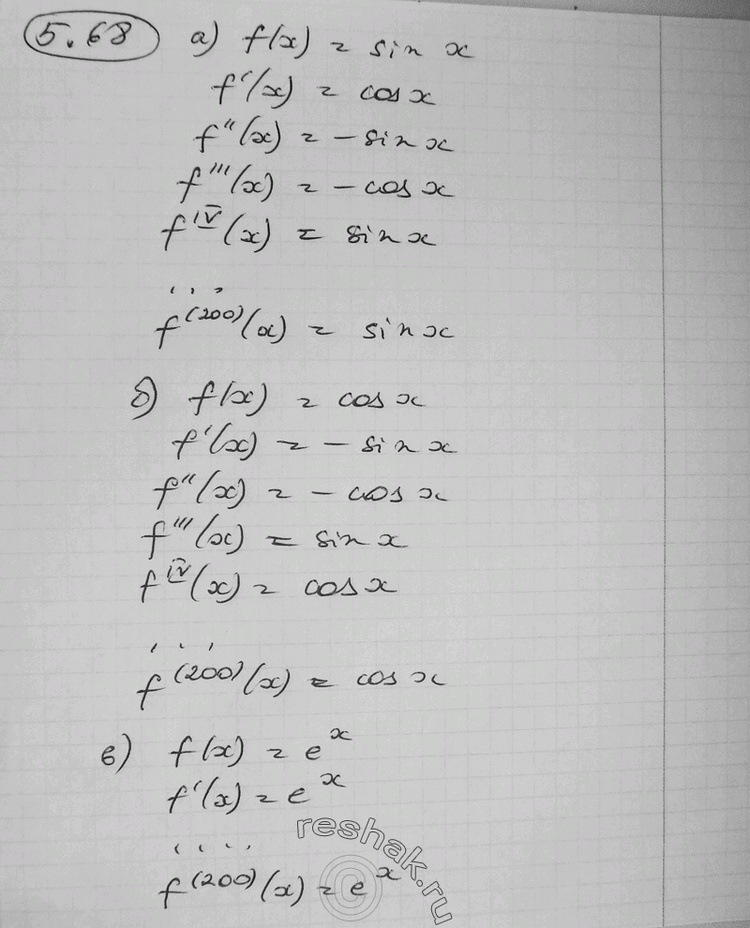 5.68 а) f(x) = sin x
f'(x) = cos x
f''(x) = - sin x
f'''(x) = - cos x
f^IV(x) = sin x
...
f^(200)(x) = sin x
б) f(x) = cos x
f'(x) = - sin x
f''(x) = - cos x
f'''(x) = sin x
f^IV(x) = cos x
...
f^(200)(x) = cos x
в) f(x) = e^x
f'(x) = e^x
....
f^(200)(x) = e^x
reshak.ru